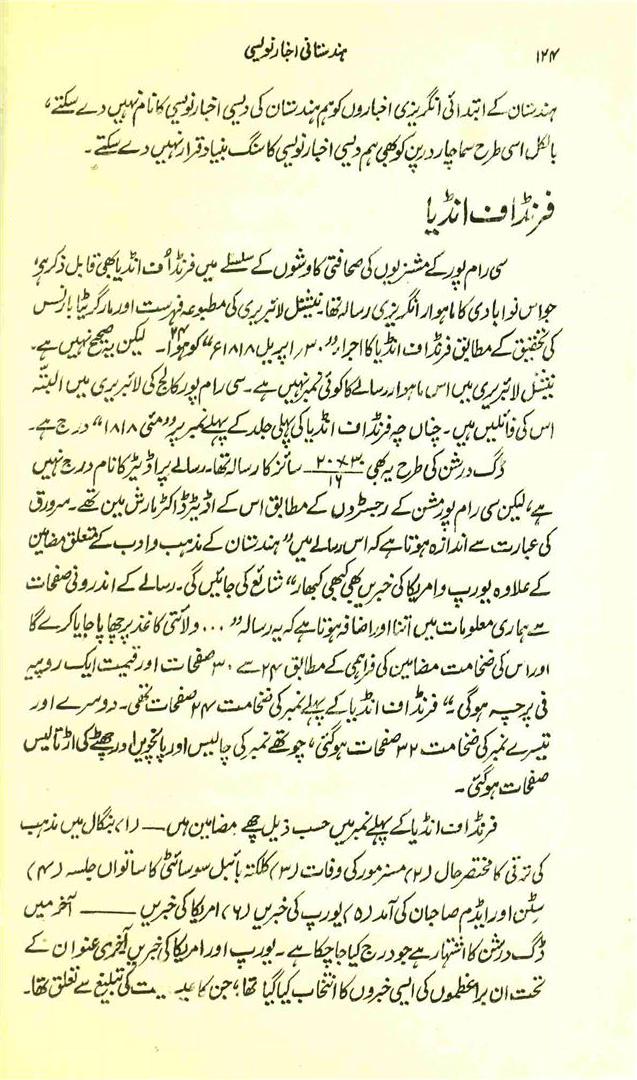 ۱۲۴ ہندستانی اخبار نویسی
ہندستان کے ابتدائی انگریزی اخباروں کو ہم ہندستان کی دیسی اخبار نویسی کا نام نہیں دے سکتے،
بالکل اسی طرح سماچار درپن کو بھی ہم دیسی اخبار نویسی کا سنگ بنیاد قرار نہیں دے سکتے۔
فرنڈ اف انڈیا
سی رام پور کے مشنریوں کی صحافتی کاوشوں کے سلسلے میں فرنڈ اُف انڈیا بھی قابل ذکر ہے،
جو اس نوابادی کا ماہوار انگریزی رسالہ تھا۔ نیشنل لائبریری کی مطبوعہ فہرست اور مارگریٹا بارنس
کی تحقیق کے مطابق فرنڈ اف انڈیا کا اجرار ”۳۰؍ اپریل ۱۸۱۸ء“ کو ہوا۲۴۔ لیکن یہ صحیح نہیں ہے۔
نیشنل لائبریری میں اس ماہوار رسالے کا کوئی نمبر نہیں ہے۔ سی رام پور کالج کی لائبریری میں البتّہ
اس کی فائلیں ہیں۔ چناں چہ فرنڈ اف انڈیا کی پہلی جلد کے پہلے نمبر پر ”مئی ۱۸۱۸“ درج ہے۔
ڈگ درشن کی طرح یہ بھی ۲۰×۳۰/۱۶ سائز کا رسالہ تھا۔ رسالے پر اڈیٹر کا نام درج نہیں
ہے، لیکن سی رام پور مشن کے رجسٹروں کے مطابق اس کے اڈیٹر ڈاکٹر مارش مین تھے۔ سرورق
کی عبارت سے اندازہ ہوتا ہے کہ اس رسالے میں ”ہندستان کے مذہب و ادب کے متعلق مضامین
کے علاوہ یورپ و امریکا کی خبریں بھی کبھی کبھار“ شائع کی جائیں گی۔ رسالے کے اندرونی صفحات
سے ہماری معلومات میں اتنا اور اضافہ ہوتا ہے کہ یہ رسالہ ”... ولائتی کاغذ پر چھاپا جایا کرے گا
اور اس کی ضخامت مضامین کی فراہمی کے مطابق ۲۴ سے ۳۰ صفحات اور قیمت ایک روپیہ
فی پرچہ ہوگی۔“ فرنڈ اف انڈیا کے پہلے نمبر کی ضخامت ۲۴ صفحات تھی۔ دوسرے اور
تیسرے نمبر کی ضخامت ۳۲ صفحات ہوگئی، چوتھے نمبر کی چالیس اور پانچویں اور چھٹے کی اڑتالیس
صفحات ہوگئی۔
فرنڈ اف انڈیا کے پہلے نمبر میں حسب ذیل چھے مضامین ہیں — (۱) بنگال میں مذہب
کی ترقی کا مختصر حال (۲) مسز مور کی وفات (۳) کلکتہ بائبل سوسائٹی کا ساتواں جلسہ (۴)
سٹن اور ایڈم صاجان کی آمد (۵) یورپ کی خبریں (۶) امریکا کی خبریں —— آخر میں
ڈگ درشن کا اشتہار ہے جو درج کیا جا چکا ہے۔ یورپ اور امریکا کی خبریں آخری عنوان کے
تحت ان براعظموں کی ایسی خبروں کا انتخاب کیا گیا تھا، جن کا کی تبلیغ سے تعلق تھا۔